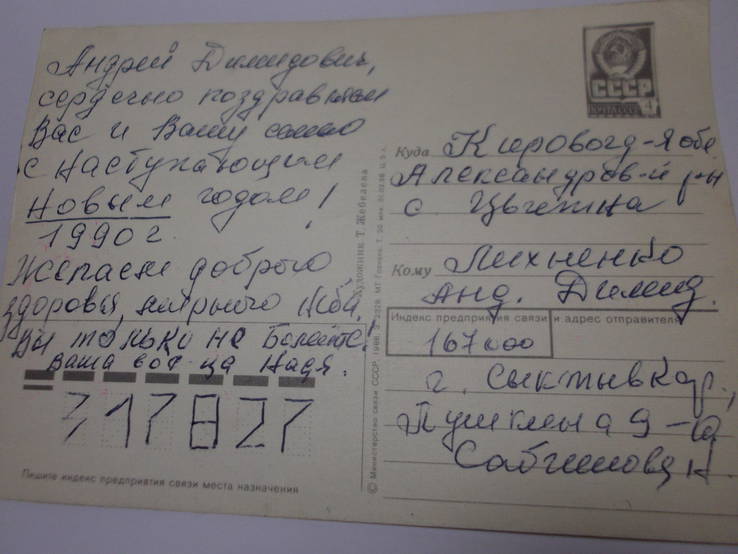 Андрей Димидович,
сердечно поздравляем
Вас и Вашу семью
с Наступающим
Новым годом!
1990 г.
Желаем доброго
здоровья, мирного неба,
Вы только не болейте!
Ваша Надя.
317827
Пишите индекс предприятия связи места назначения
Художник Т. Жебелева
© Министерство связи СССР, 1988.
СССР
4
Куда Кировогд-я обл
Александров-й р-н
с Цветна
Кому Лихненко
Анд. Димид.
Индекс предприятия связи и адрес отправителя
167000
г. Сыктывкар,
Пушкина 9-